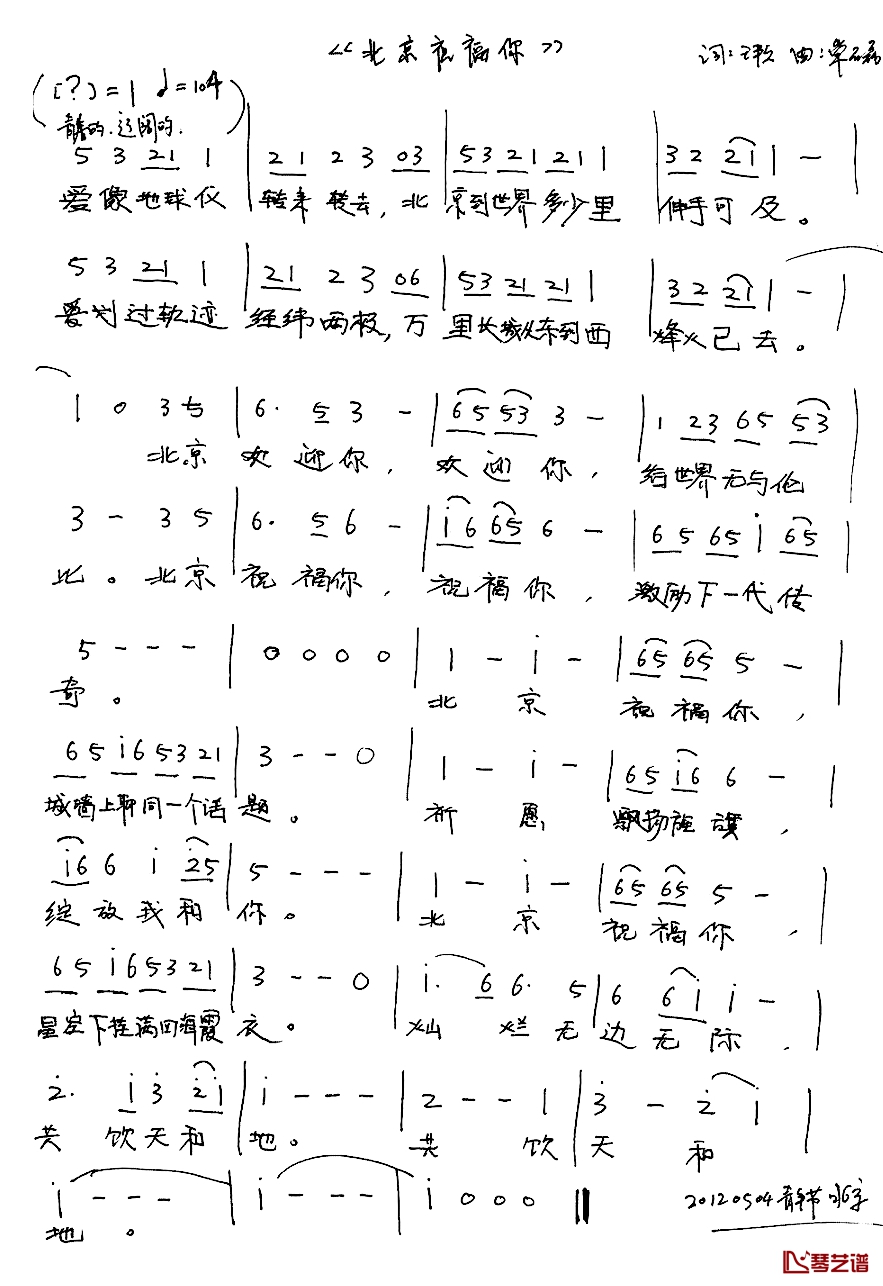 《北京祝福你》
词：王 曲：常磊
([?)=1 ♩=104
青春的.辽阔的.
5 3 21 1 | 21 2 3 03 | 53 21 21 1 | 32 2i 1 - |
爱像地球仪 转来转去，北京到世界多少里 伸手可及。
5 3 21 1 | 21 2 3 06 | 53 21 21 1 | 32 21 1 - |
爱划过轨迹 经纬两极，万里长城从东到西 烽火已去。
1 0 3 5 | 6. 5 3 - | 65 53 3 - | 1 23 65 53 |
北京欢迎你，欢迎你，给世界无与伦
3 - 3 5 | 6. 5 6 - | i6 65 6 - | 65 65 i 65 |
比。北京祝福你，祝福你，激励下一代传
5 - - - | 0 0 0 0 | 1 - i - | 65 65 5 - |
奇。 北京 祝福你，
65 i6 53 21 | 3 - - 0 | 1 - i - | 65 i6 6 - |
城墙上聊同一个话题。 祈愿 飘扬旌旗，
i6 6 i 25 | 5 - - - | 1 - i - | 65 65 5 - |
绽放我和你。 北京 祝福你，
65 i6 53 21 | 3 - - 0 | i. 6 6. 5 | 6 6i i - |
星空下挂满四海霞衣。 灿烂无边无际，
2. i3 2i | i - - - | 2 - - 1 | 3 - 2 i |
共饮天和地。 共饮天和
i - - - | i - - - | i 0 0 0 ||
地。
20120504青年节
琴艺谱